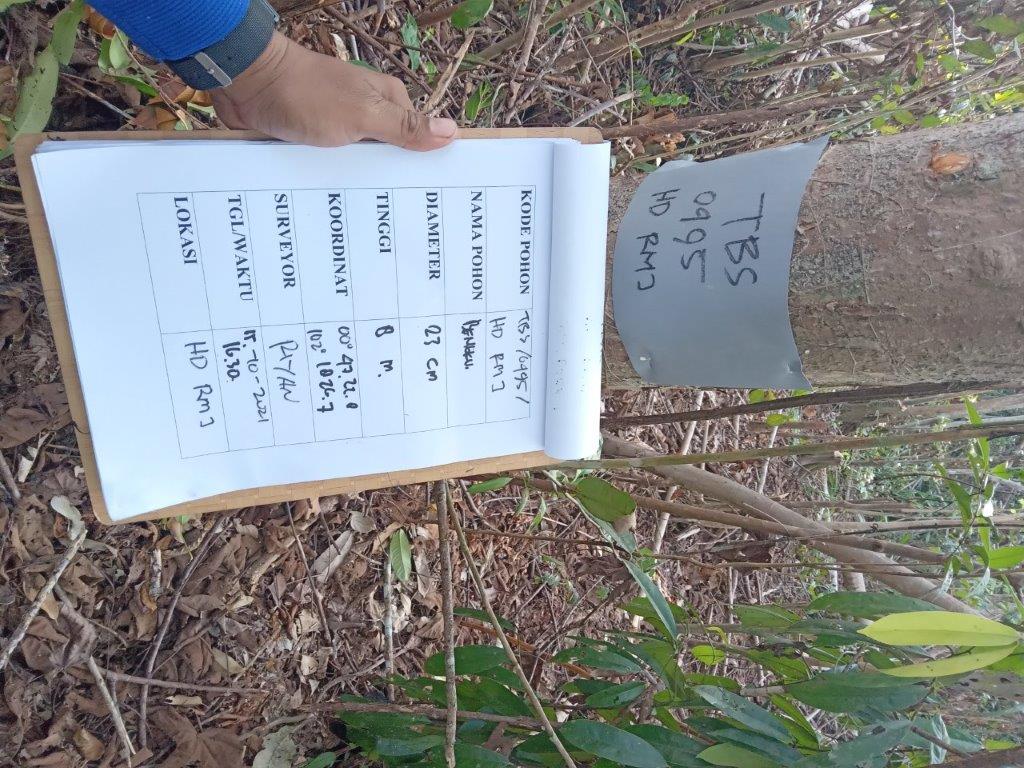 TBS
0995
HD RMJ
KODE POHON TBS/0995/
HD RMJ
NAMA POHON
DIAMETER 23 cm
TINGGI 8 m.
KOORDINAT 00° 47 22.0
102° 1026.7
SURVEYOR RIYAN
TGL/WAKTU 15-10-2021
1630.
LOKASI HD RMJ